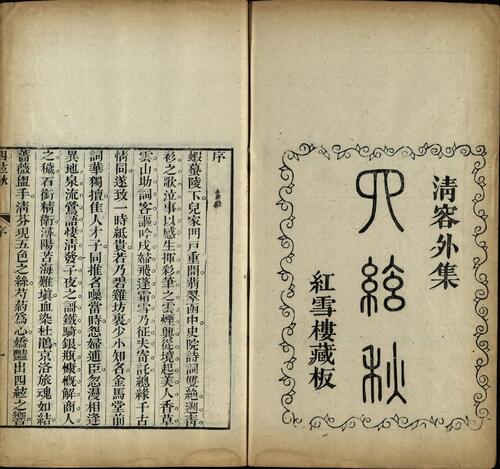 清容外集
四絃秋
紅雪樓藏板
序
蝦蟇陵下兒家門戸重開翡翠函中史院詩詞雙絶溯青
衫之歌泣事以感生揮彩筆之雲烟興從境起美人香草
雲山助詞客謳吟戍婦飛蓬霜雪乃征夫寄託總緣千古
情同遂致一時紙貴若乃碧雞坊裏少小知名金馬堂前
詞華獨擅佳人才子同推名噪當時怨婦逋臣忽漫相逢
異地泉流鶯語悽清發子夜之謳鐵騎銀瓶慷慨解商人
之穢石銜精衛潯陽苦海難填血染杜鵑京洛旅魂如結
薔薇盥手清芬現五色之絲芍藥爲心嬌豔出四絃之響
四絃秋
序
一